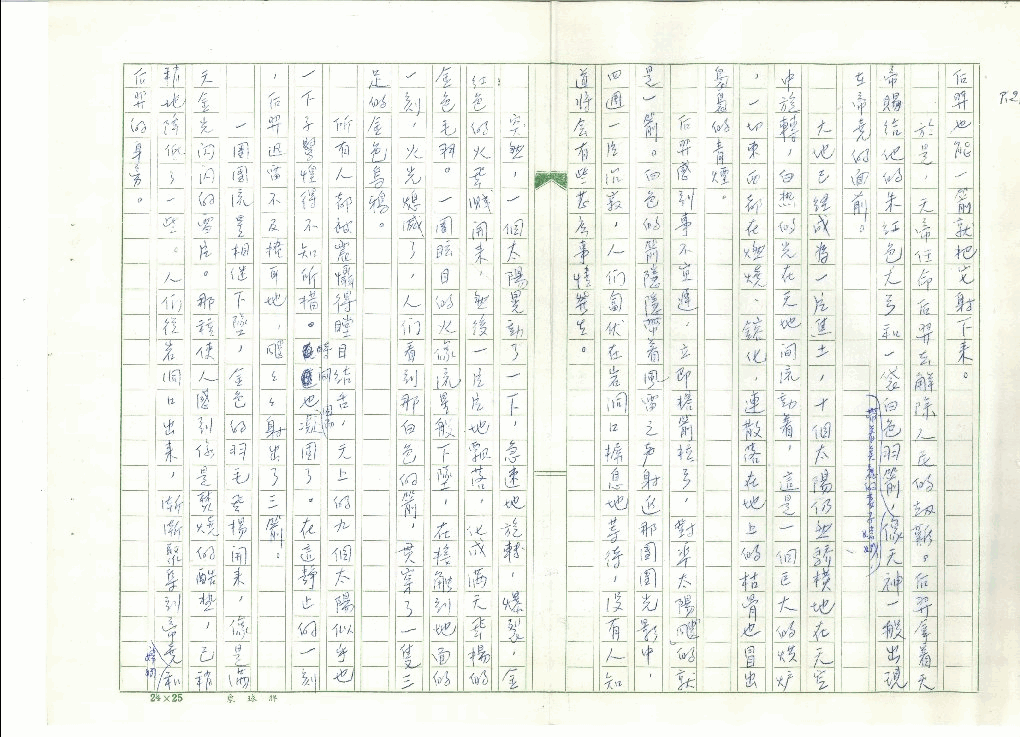 P.2
后羿也能一箭就把它射下來。
於是，天帝任命后羿去解除人民的劫難。后羿拿着天
帝賜給他的朱紅色大弓和一袋白色羽箭，像天神一般出現
帶着美麗的妻子嫦娥，
在帝堯的面前。
大地已經成為一片焦土，十個太陽仍然驕橫地在天空
中旋轉，白熱的光在天地間流動着，這是一個巨大的烘爐
，一切東西都在燃燒、鎔化，連散落在地上的枯骨也冒出
裊裊的青煙。
后羿感到事不宜遲，立即搭箭拉弓，對準太陽颼的就
是一箭。白色的箭隱隱帶着風雷之聲射近那團團光影中，
四週一片沉寂，人們匍伏在岩洞口摒息地等待，沒有人知
道將會有些甚麼事情發生。
突然，一個太陽晃動了一下，急速地旋轉，爆裂，金
紅色的火花濺開來，然後一片片地飄落，化成滿天飛揚的
金色毛羽。一團眩目的火像流星般下墜，在接觸到地面的
一刻，火光熄滅了，人們看到那白色的箭，貫穿了一隻三
足的金色烏鴉。
所有人都被震懾得瞠目結舌，天上的九個太陽似乎也
一下子驚惶得不知所措。時間也凝固了。在這靜止的一刻
，后羿迅雷不及掩耳地，颼颼颼射出了三箭。
一團團流星相繼下墜，金色的羽毛飛揚開來，像是滿
天金光閃閃的雪片。那種使人感到像是焚燒的酷熱，已稍
稍地降低了一些。人們從岩洞口出來，漸漸聚集到帝堯和
嫦娥
后羿的身旁。
24×25